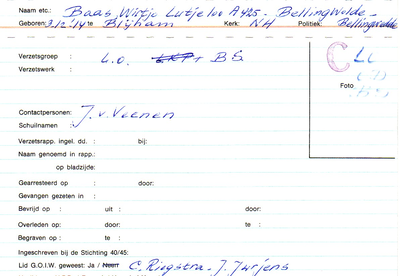 Naam etc.: Baas Wirtjo Lutjeloo A425 - BellingWolde -
Geboren: 3/12'14 te Blijham Kerk: NH Politiek: Bellingwolde
Verzetsgroep : L.O. LKP + BS
C LO
Verzetswerk :
Foto BS
Contactpersonen: J. v. Veenen
Schuilnamen :
Verzetsrapp. ingel. dd. : bij:
Naam genoemd in rapp.:
op bladzijde:
Gearresteerd op : door:
Gevangen gezeten in :
Bevrijd op : uit : door:
Overleden op: door: te :
Begraven op : te :
Ingeschreven bij de Stichting 40/45:
Lid G.O.I.W. geweest: Ja / Neen C. Ringstra. J. Jurjens